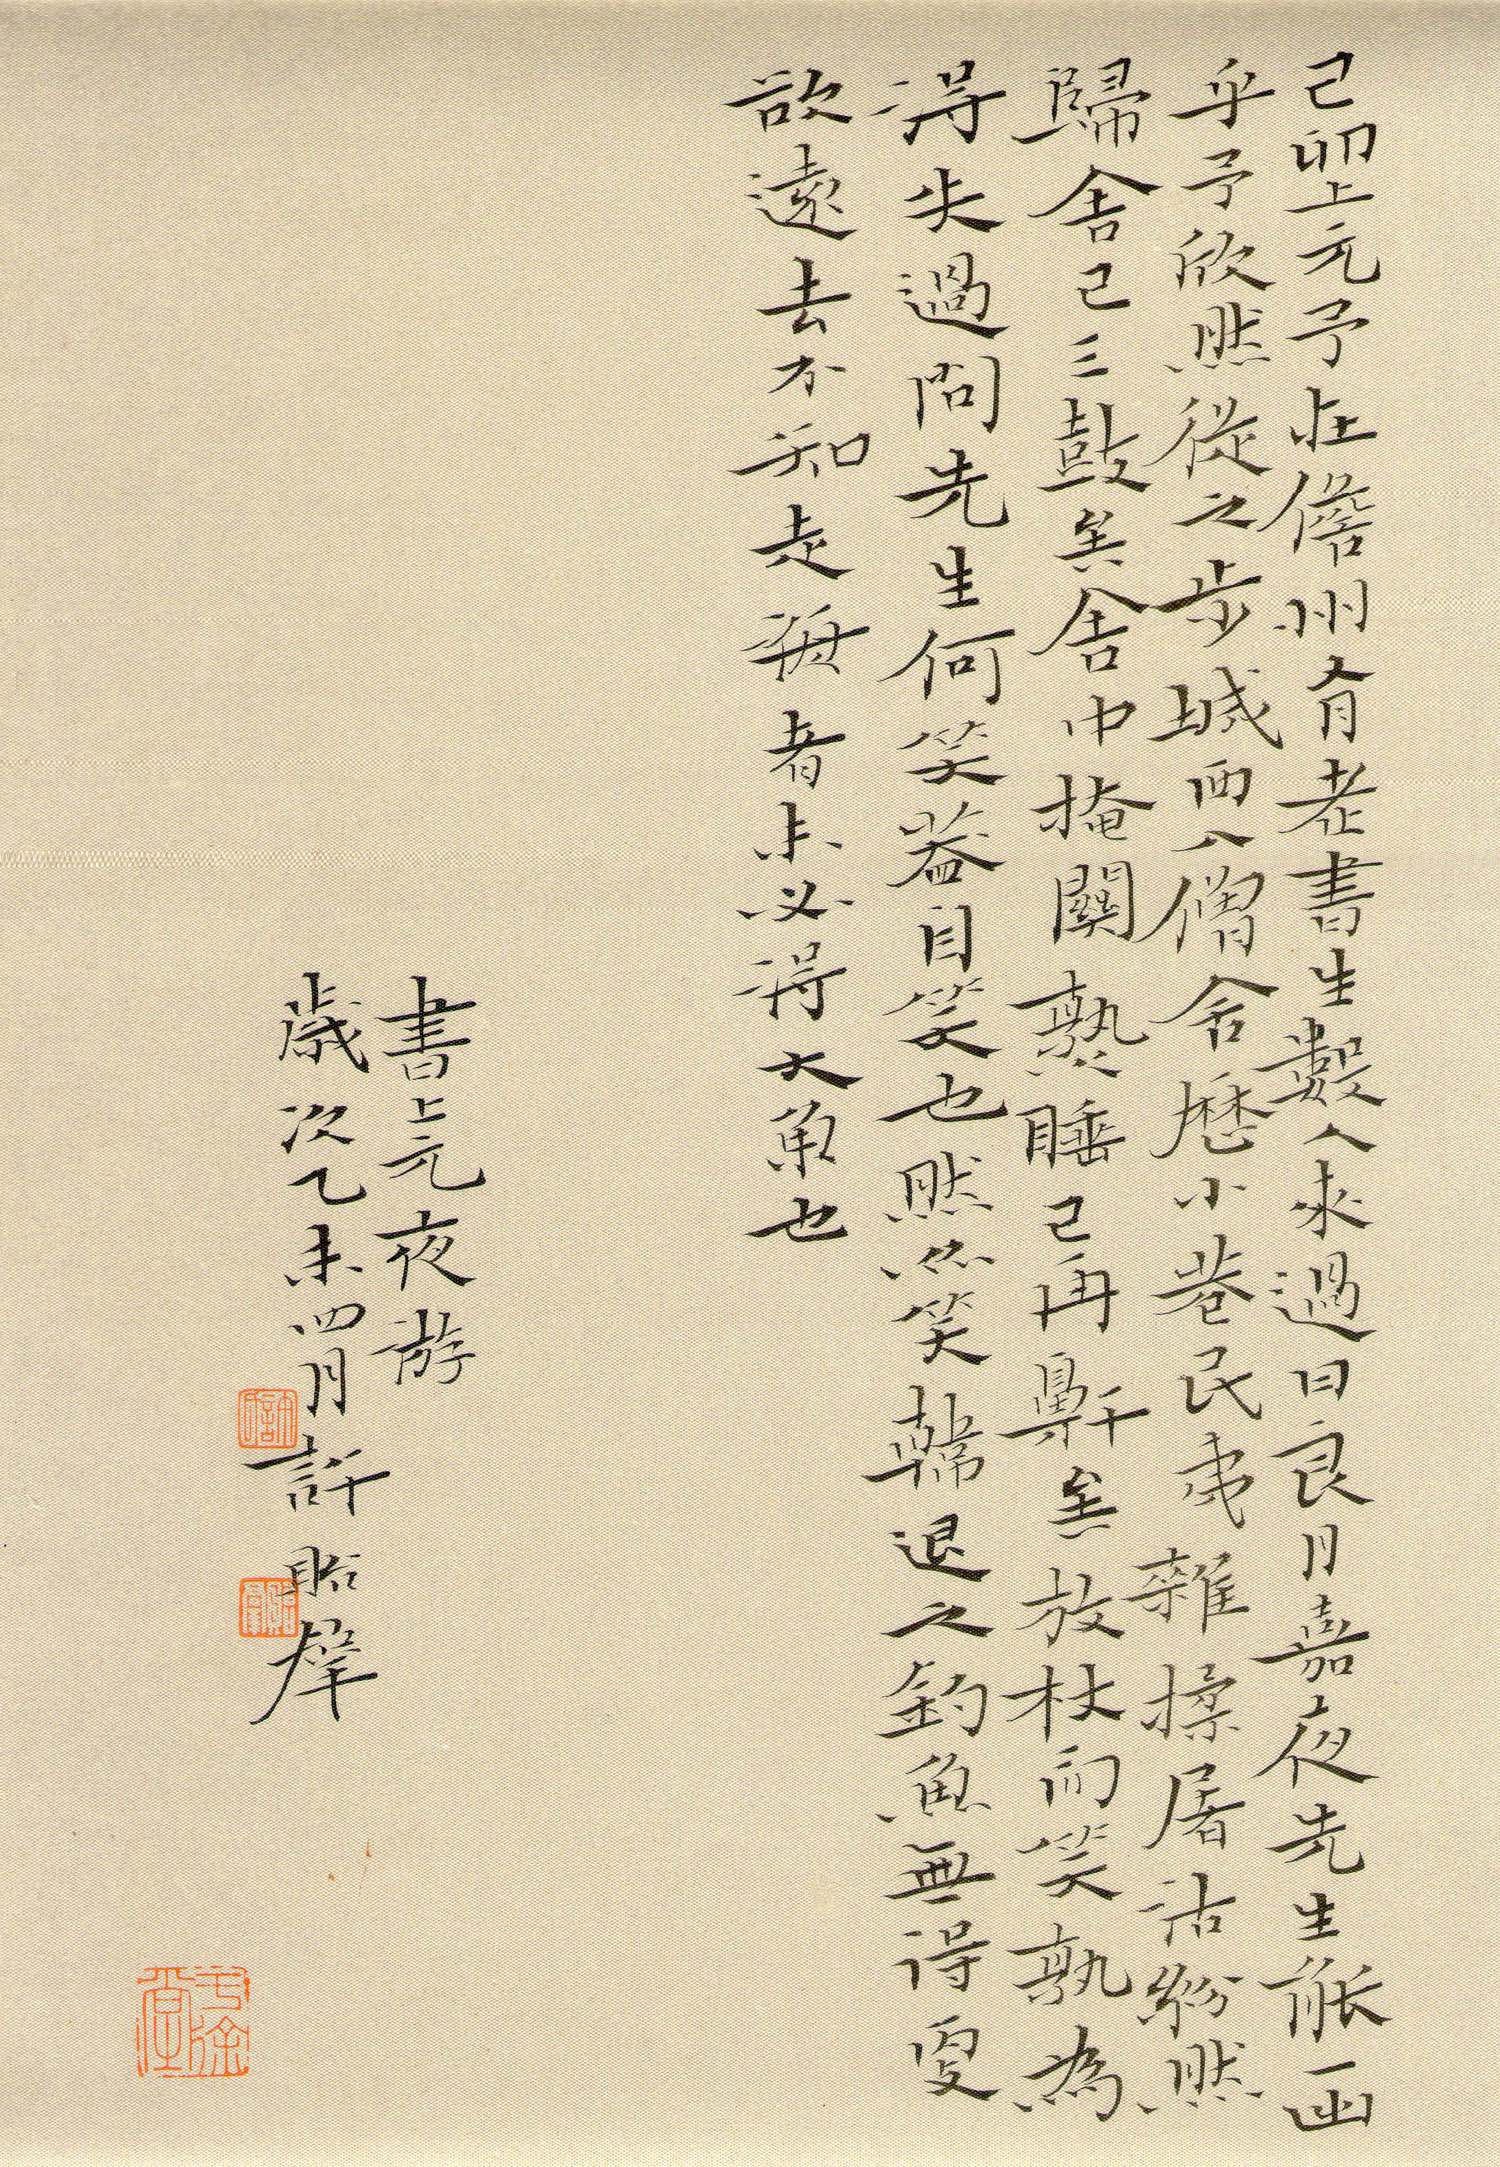 己卯上元予在儋州有老書生數人來過曰良月嘉夜先生能一出
乎予欣然從之步城西入僧舍歷小巷民夷雜揉屠沽紛然
歸舍已三鼓矣舍中掩關熟睡已再鼾矣放杖而笑孰為
得失過問先生何笑蓋自笑也然亦笑韓退之釣魚無得更
欲遠去不知走海者未必得大魚也
書上元夜游
歲次乙未四月許